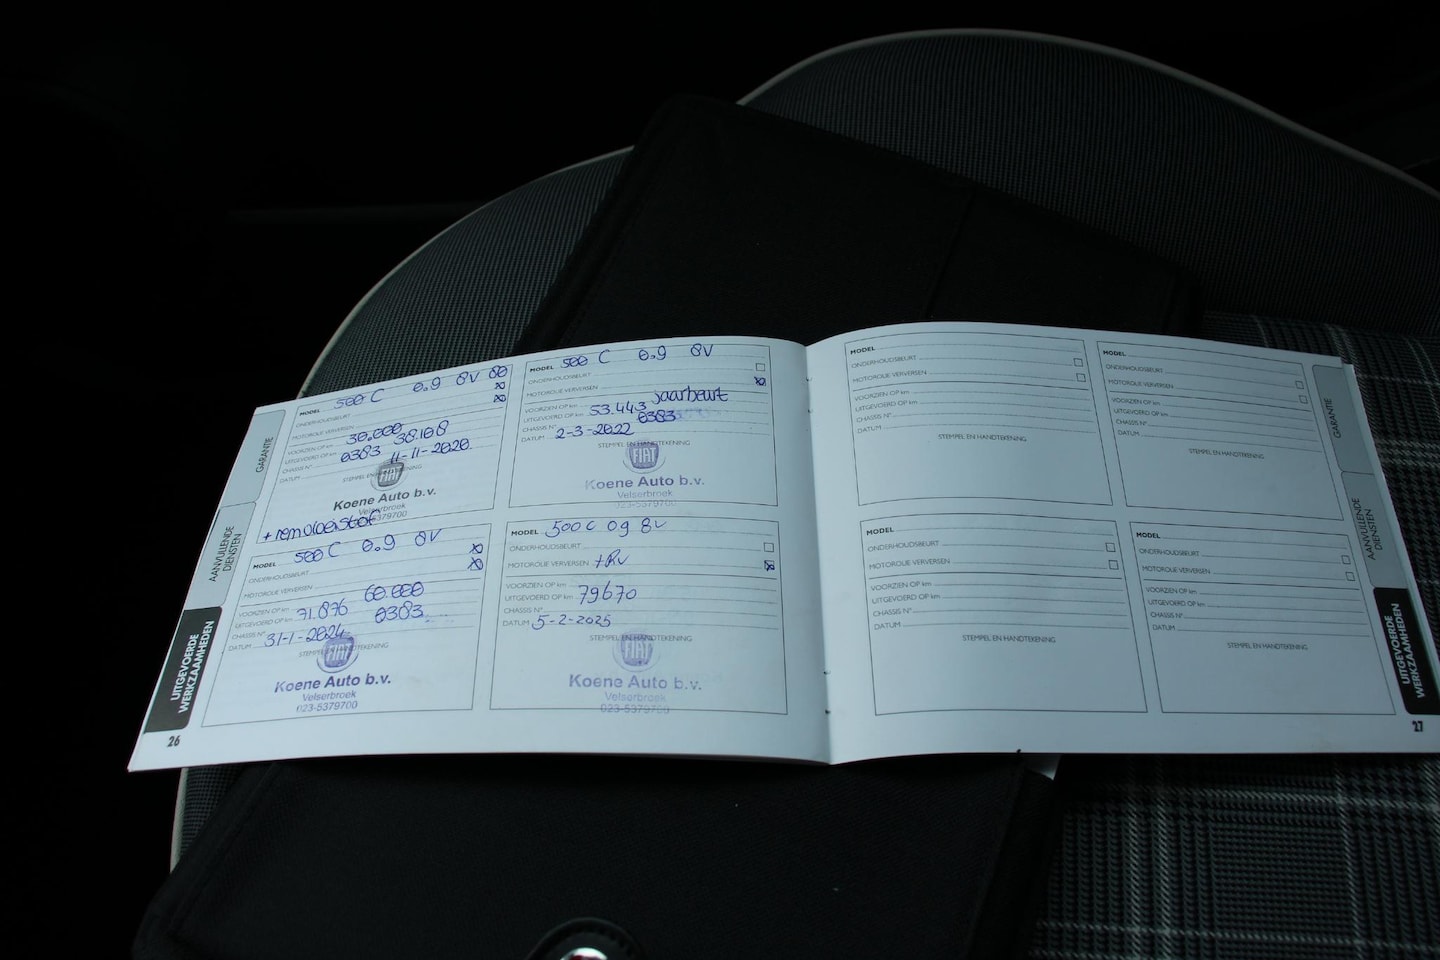 GARANTIE
AANVULLENDE
DIENSTEN
UITGEVOERDE
WERKZAAMHEDEN
26
MODEL 500 C 0.9 8V 80
ONDERHOUDSBEURT
MOTOROLIE VERVERSEN
VOORZIEN OP km 30.000
UITGEVOERD OP km 38.108
CHASSIS N° 0383
DATUM 11-11-2020
STEMPEL EN HANDTEKENING
FIAT
Koene Auto b.v.
Velserbroek
023-5379700
+ remvloeistof
MODEL 500 C 0.9 8V
ONDERHOUDSBEURT
MOTOROLIE VERVERSEN
VOORZIEN OP km Jaarbeurt
UITGEVOERD OP km 53.443
CHASSIS N° 0383
DATUM 2-3-2022
STEMPEL EN HANDTEKENING
FIAT
Koene Auto b.v.
Velserbroek
023-5379700
MODEL 500 C 0.9 8V
ONDERHOUDSBEURT
MOTOROLIE VERVERSEN
VOORZIEN OP km 60.000
UITGEVOERD OP km 71.876
CHASSIS N° 0383
DATUM 31-1-2024
STEMPEL EN HANDTEKENING
FIAT
Koene Auto b.v.
Velserbroek
023-5379700
MODEL 500 C 09 8V
ONDERHOUDSBEURT
MOTOROLIE VERVERSEN +RV
VOORZIEN OP km
UITGEVOERD OP km 79670
CHASSIS N°
DATUM 5-2-2025
STEMPEL EN HANDTEKENING
FIAT
Koene Auto b.v.
Velserbroek
023-5379700
MODEL
ONDERHOUDSBEURT
MOTOROLIE VERVERSEN
VOORZIEN OP km
UITGEVOERD OP km
CHASSIS N°
DATUM
STEMPEL EN HANDTEKENING
MODEL
ONDERHOUDSBEURT
MOTOROLIE VERVERSEN
VOORZIEN OP km
UITGEVOERD OP km
CHASSIS N°
DATUM
STEMPEL EN HANDTEKENING
MODEL
ONDERHOUDSBEURT
MOTOROLIE VERVERSEN
VOORZIEN OP km
UITGEVOERD OP km
CHASSIS N°
DATUM
STEMPEL EN HANDTEKENING
MODEL
ONDERHOUDSBEURT
MOTOROLIE VERVERSEN
VOORZIEN OP km
UITGEVOERD OP km
CHASSIS N°
DATUM
STEMPEL EN HANDTEKENING
GARANTIE
AANVULLENDE
DIENSTEN
UITGEVOERDE
WERKZAAMHEDEN
27